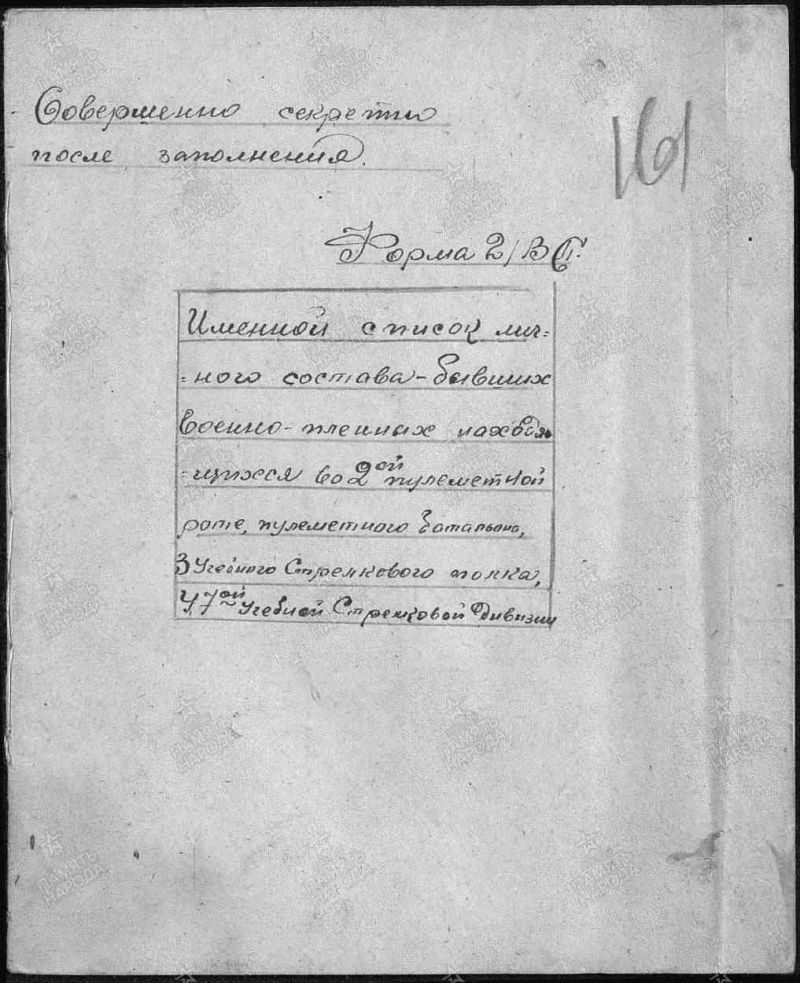 Совершенно секретно
после заполнения.
161
Форма 2/ВП.
Именной список лич=
=ного состава-бывших
военно-пленных находя
=щихся во 2ой пулеметной
роте, пулеметного батальона,
3 Учебного Стрелкового полка,
47ой Учебной Стрелковой Дивизии